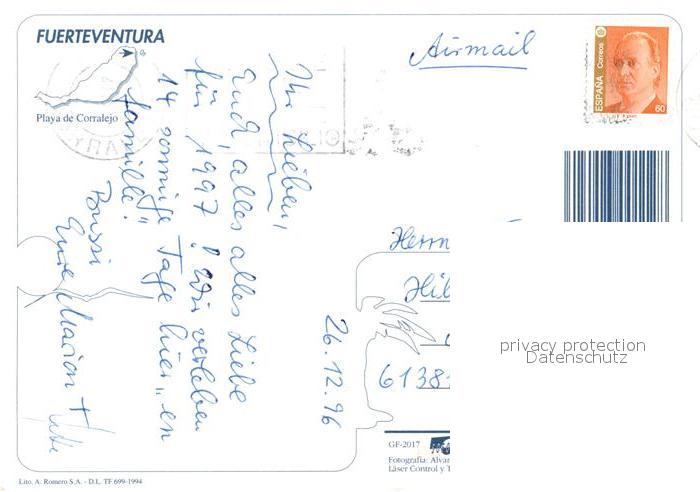 FUERTEVENTURA
Playa de Corralejo
Airmail
ESPAÑA
Correos
60
Ihr Lieben,
Euch alles alles Liebe
für 1997! Wir verleben
14 sonnige Tage hier „en
famille".
Bussi
Eure Marion +
26.12.96
Herrn
Hil
6138
privacy protection
Datenschutz
GF-2017
Fotografía: Alvar
Láser Control y T
Lito. A. Romero S.A. - D.L. TF 699-1994